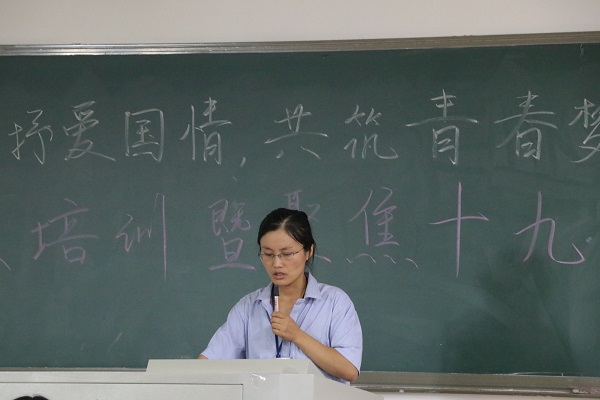 抒爱国情,共筑青春梦
培训暨聚焦十九